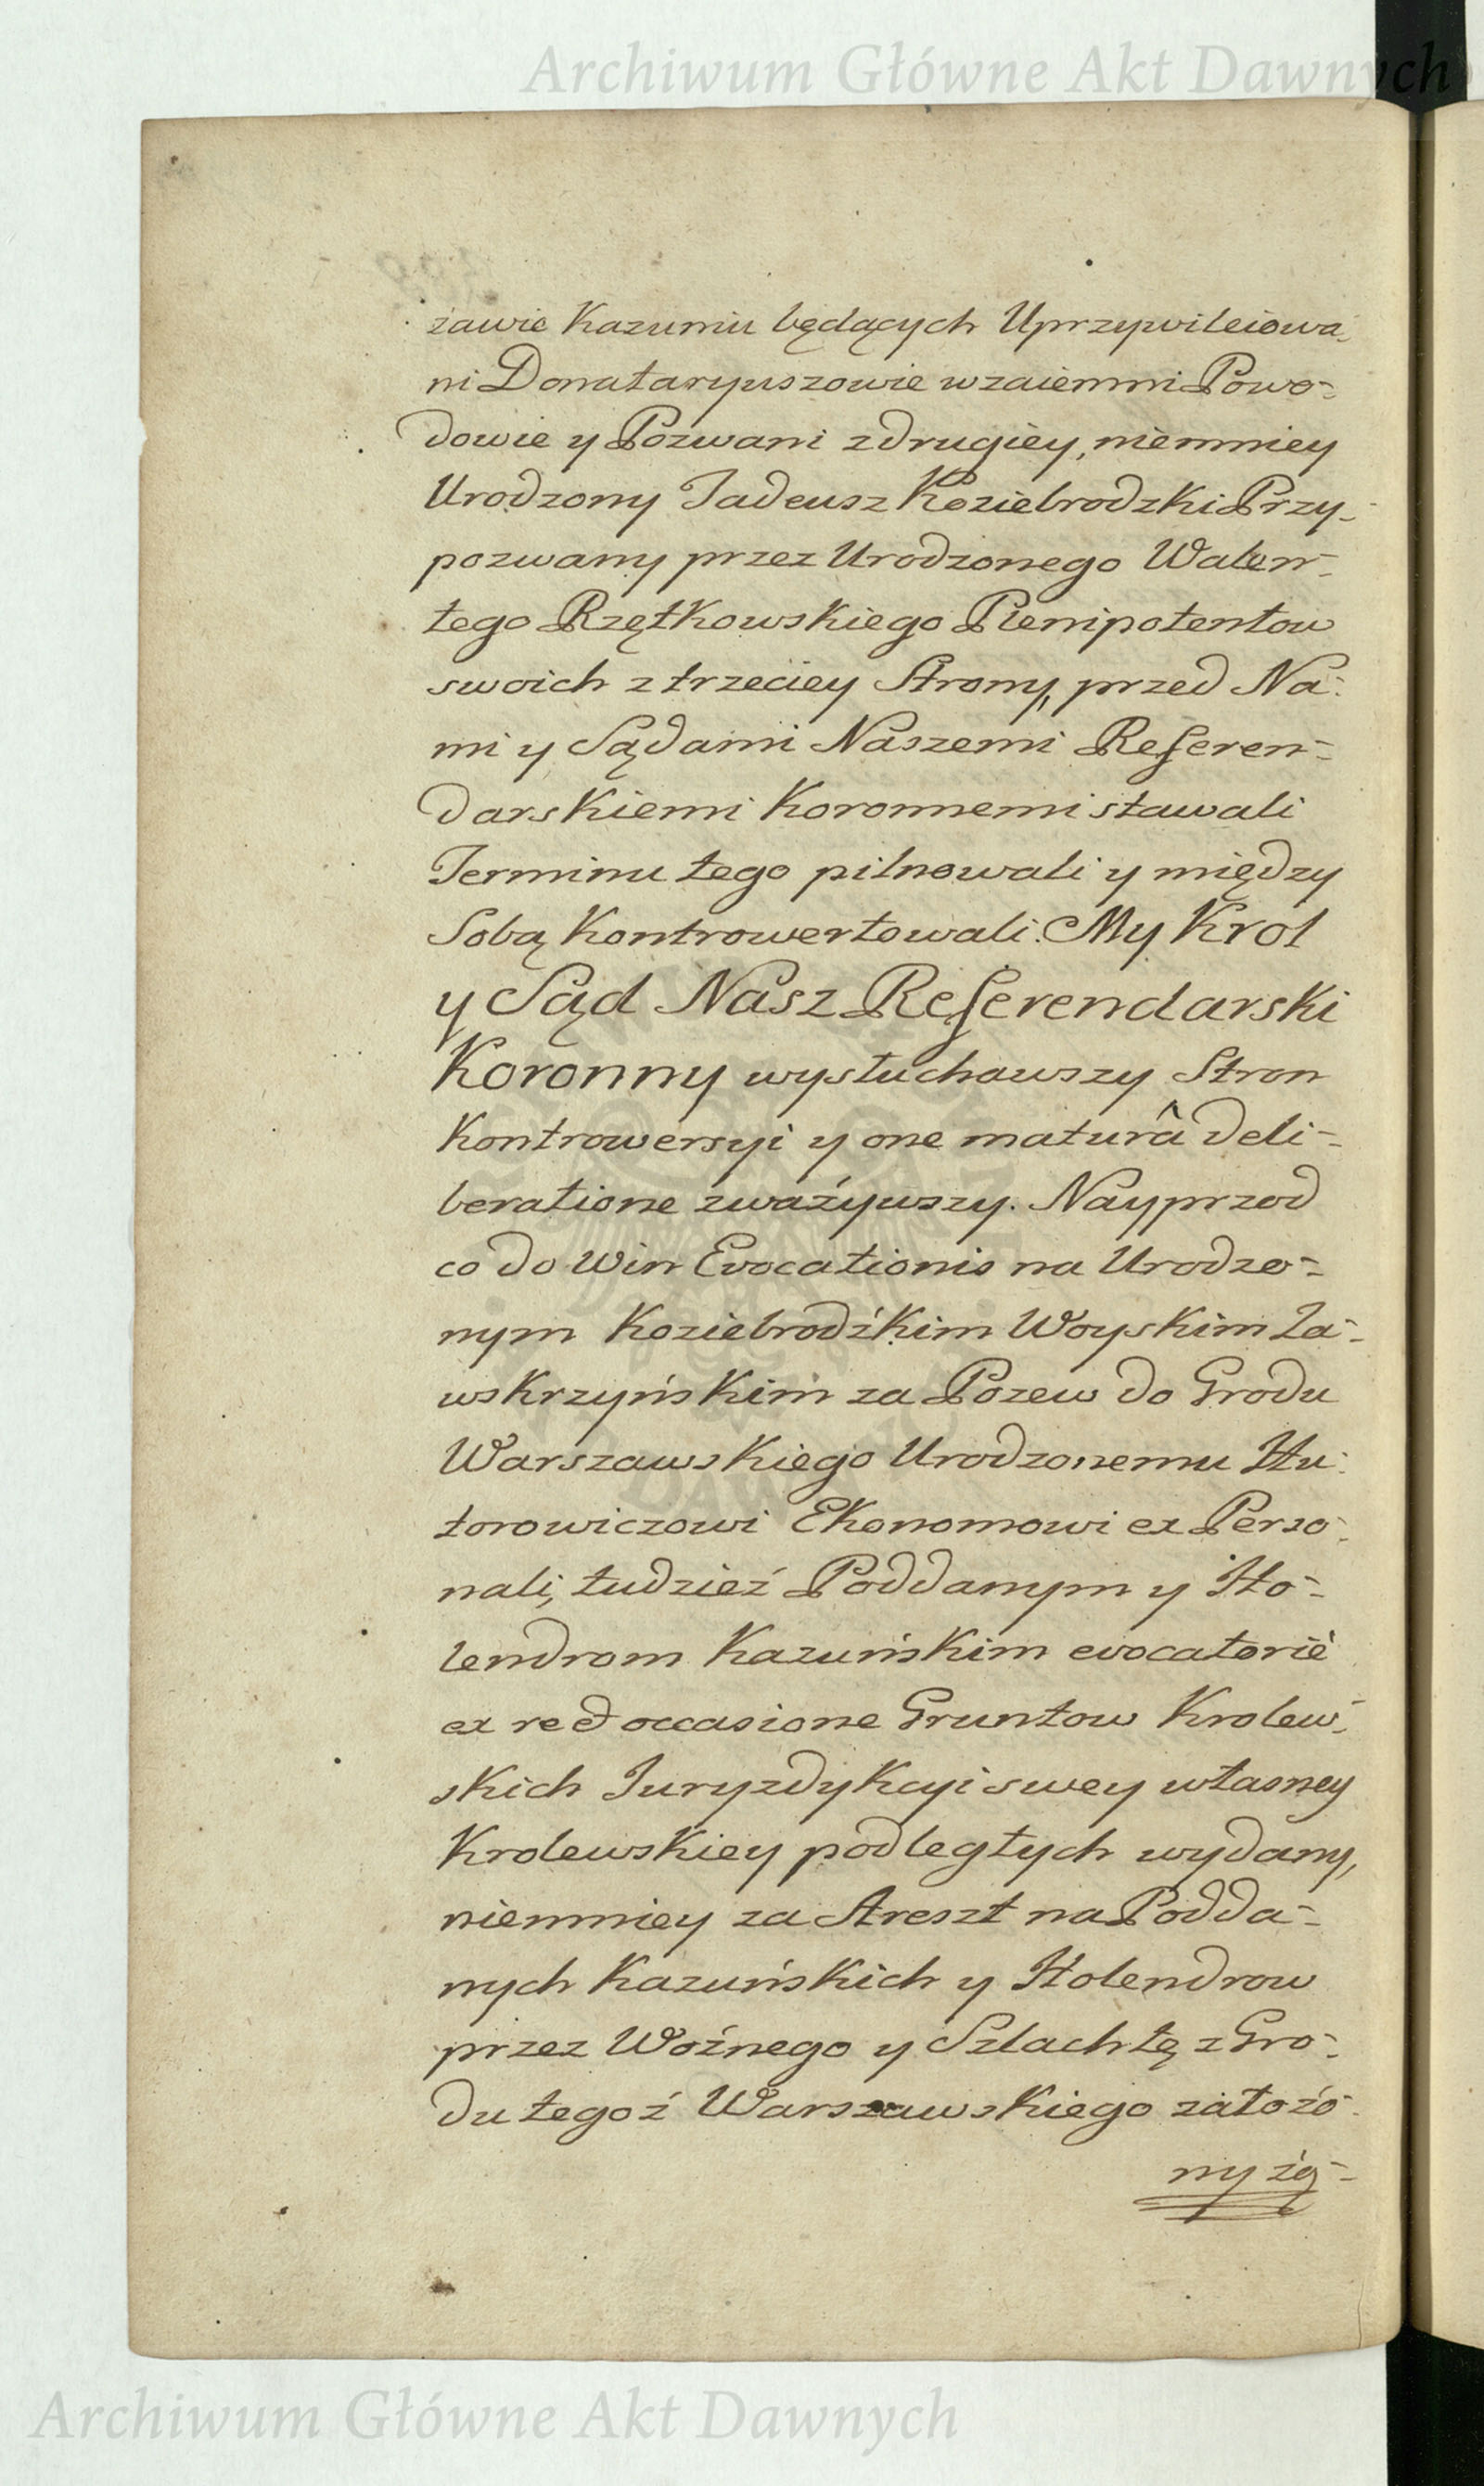 Archiwum Główne Akt Dawnych
żawie Kazuniu będących Uprzywileiowa-
ni Donataryuszowie wzaiemni Powo-
dowie y Pozwani z drugiey, niemniey
Urodzony Tadeusz Koziebrodzki Przy-
pozwany przez Urodzonego Walen-
tego Rzętkowskiego Plenipotentow
swoich z trzeciey Strony, przed Na-
mi y Sądami Naszemi Referen-
darskiemi Koronnemi stawali
Terminu tego pilnowali y między
Sobą Kontrowertowali. My Krol
y Sąd Nasz Referendarski
Koronny wysłuchawszy Stron
Kontrowersyi y one maturâ deli-
beratione zważywszy. Nayprzod
co do Win Evocationis na Urodzo-
nym Koziebrodźkim Woyskim Za-
wskrzyńskim za Pozew do Grodu
Warszawskiego Urodzonemu Hu-
torowiczowi Ekonomowi ex Perso-
nali, tudzież Poddanym y Ho-
lendrom Kazuńskim evocatorié
ex re et occasione Gruntow Krolew-
skich Juryzdykcyi swey własney
Krolewskiey podległych wydany,
niemniey za Areszt na Podda-
nych Kazuńskich y Holendrow
przez Woźnego y Szlachtę z Gro-
du tegoż Warszawskiego założo-
ny żą-
Archiwum Główne Akt Dawnych